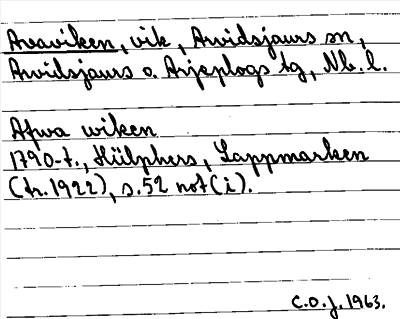 Avaviken, vik, Arvidsjaurs sn,
Arvidsjaurs o. Arjeplogs tg, Nb. l.
Afwa wiken
1790-t., Hülphers, Lappmarken
(tr. 1922), s. 52 not (i).
C.O.J. 1963.